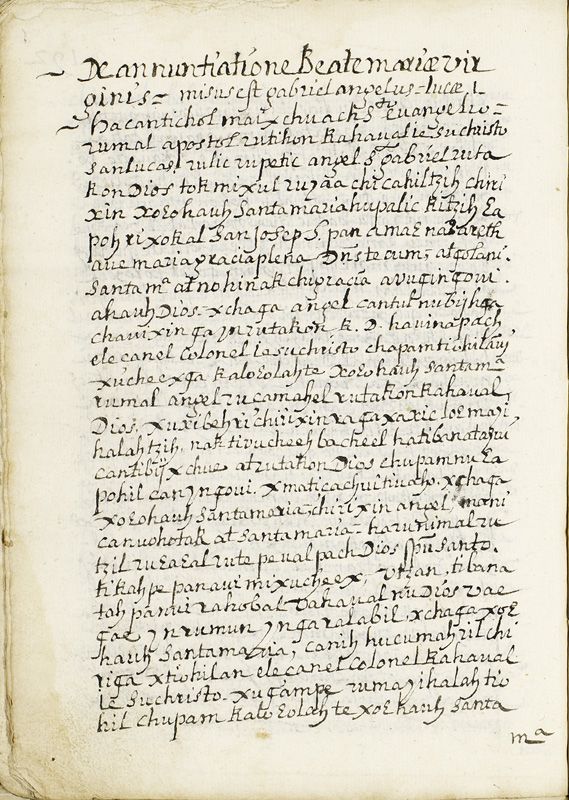 ~ De annuntiatione Beate mariæ vir
ginis = misus est gabriel angelus - lucæ 1
~ ha cantichol maix chuach S.to evangelio =
rumal apostol rutihon kahaual ie su christo
San lucas, rulic rupetic angel S. gabriel ruta
kon Dios tok mixul ruyaa chi cahil tzih chiri
xin xoεohauh Santa maria hupalic kitzih εa
poh ri xokal San Josep S. pan amaε nazareth
ave maria gracia plena Dns tecum, at golani.
Santa mª at nohinak chi gracia avugin goui.
ahauh Dios. xchaga angel can tul nubijh ga
chauixin ga yn rutakon k. D. hauinapach
ele canel Colonel ie su christo chapam tiohilauj
xucheexga kaloεolahte xoεohauh Santa mª
rumal angel zu camahel rutakon kahaual
Dios. xuxibeh ri chirixin ra ga xaxic loεmayi
halahtzih. naktirucheeh bacheel ha tibanatahu
cantibij xchue at rutation Dios chupam nu εa
pohil can yn goui. x maticachuctiuaho. xchaga
xoεohauh Santa maria, chirixin angel, mani
canuohotak at Santa maria - harunimal ru
tzil ruεaεal rute peual pach Dios spu Santo.
tikahpe panaui mixucheex, utzan, tibana
tah panui rahobal Vahaual nu Dios vae
gae yn rumun ynga ralabil. xchaga xoε
hauh Santa maria, canih hucumah xil chi
riga xtiohilan ele canel Colonel kahaual
ie Su christo. xugampe rumayihalah tio
hil chupam kaloεolahte xoεhauh Santa
mª